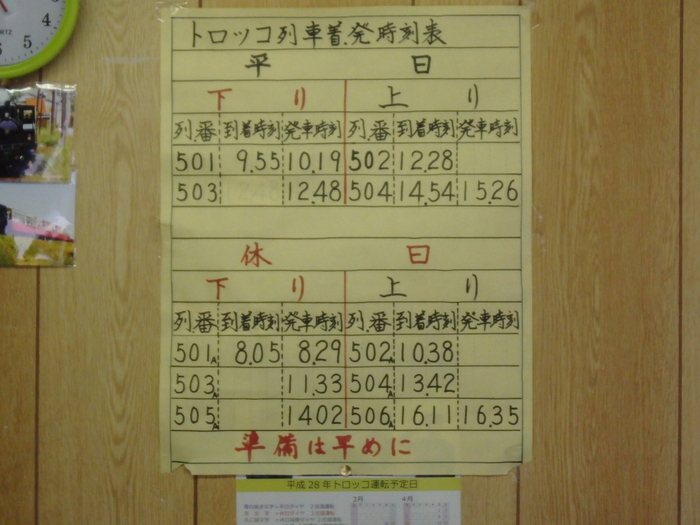 トロッコ列車着.発時刻表
平 日
下 り 上 り
列.番 到着時刻 発車時刻 列.番 到着時刻 発車時刻
501 9.55 10.19 502 12.28
503 12.48 504 14.54 15.26
休 日
下 り 上 り
列.番 到着時刻 発車時刻 列.番 到着時刻 発車時刻
501A 8.05 8.29 502A 10.38
503A 11.33 504A 13.42
505A 1402 506A 16.11 16.35
準備は早めに
平成28年トロッコ運転予定日
3月 4月